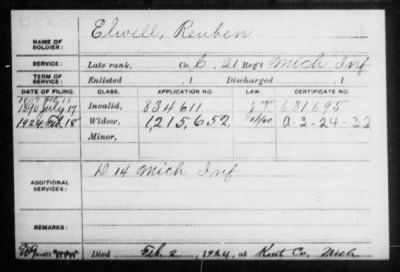 Elwell, Reuben
NAME OF SOLDIER:
SERVICE: Late rank, Co. C, 21 Reg't Mich Inf
TERM OF SERVICE: Enlisted , 1 Discharged , 1
DATE OF FILING. CLASS. APPLICATION NO. LAW. CERTIFICATE NO.
1890 July 17 Invalid, 834611 631695
1924 Feb. 18 Widow, 1,215,652 a-3-24-32
Minor,
D 14 Mich Inf
ADDITIONAL SERVICES:
REMARKS:
Died Feb. 2, 1924, at Kent Co. Mich